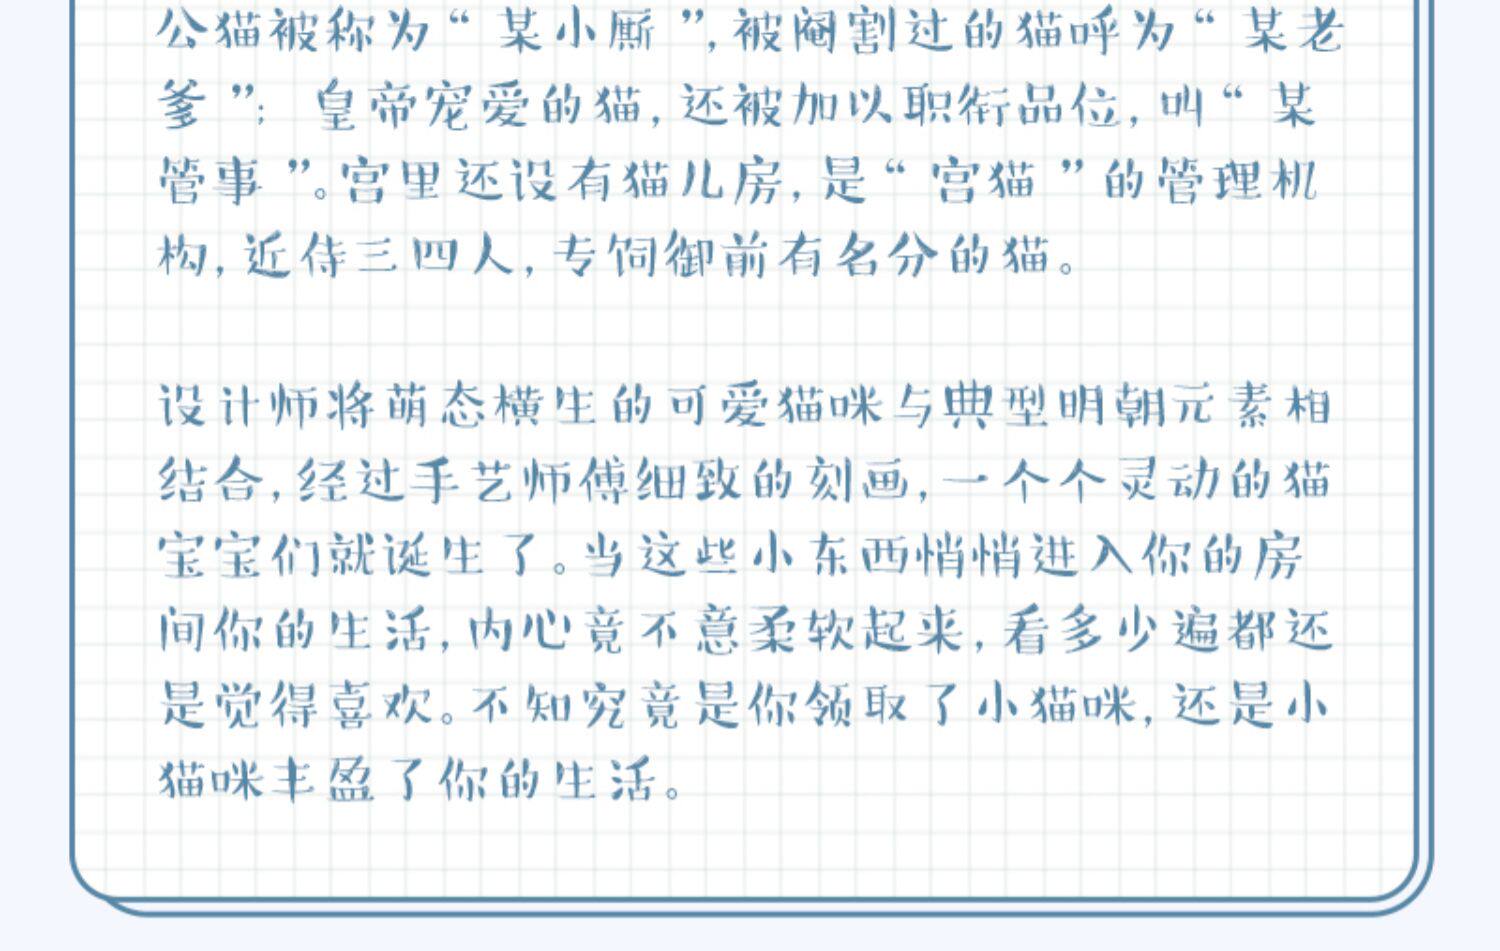 公猫被称为“某小厮”,被阉割过的猫呼为“某老
爹”; 皇帝宠爱的猫,还被加以职衔品位,叫“某
管事”。宫里还设有猫儿房,是“宫猫”的管理机
构,近侍三四人,专饲御前有名分的猫。
设计师将萌态横生的可爱猫咪与典型明朝元素相
结合,经过手艺师傅细致的刻画,一个个灵动的猫
宝宝们就诞生了。当这些小东西悄悄进入你的房
间你的生活,内心竟不意柔软起来,看多少遍都还
是觉得喜欢。不知究竟是你领取了小猫咪,还是小
猫咪丰盈了你的生活。